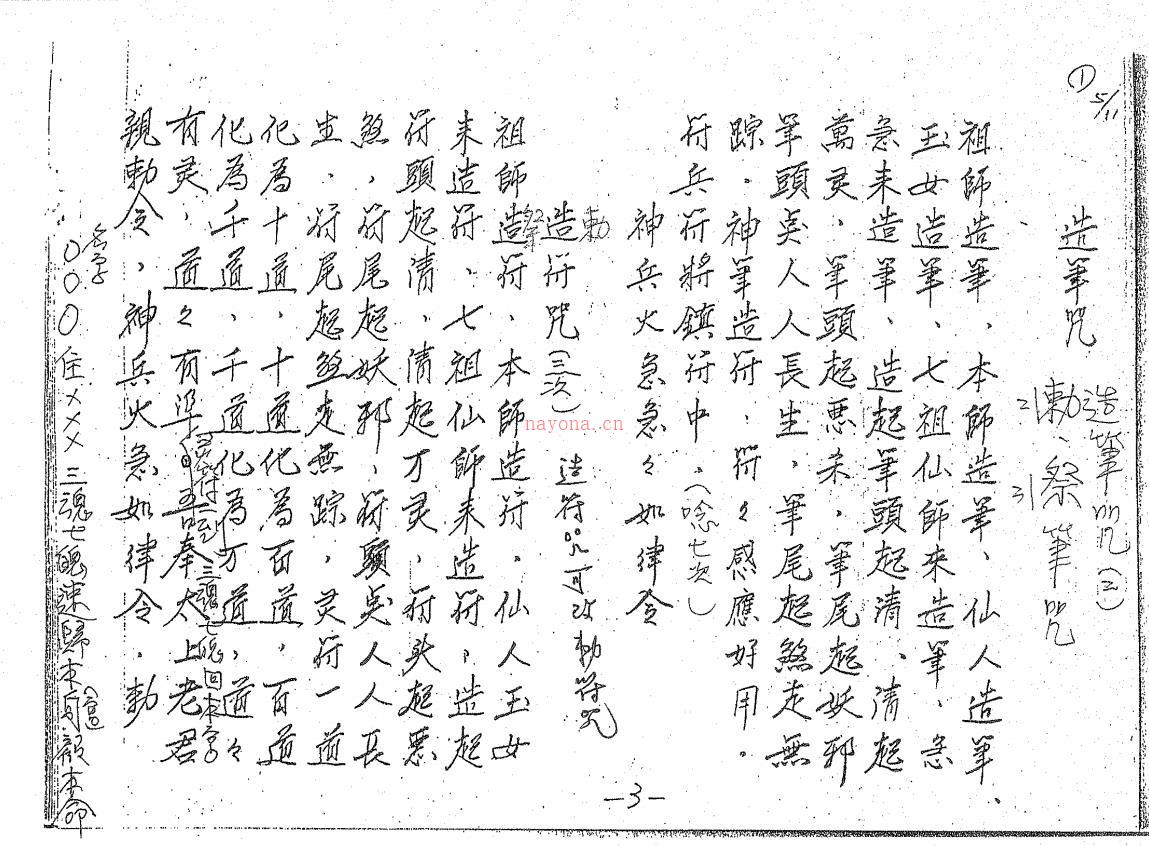 ① 5/11
造筆咒
造筆咒(2)
2)勅、3)祭筆咒
祖師造筆、本師造筆、仙人造筆、
玉女造筆、七祖仙師來造筆、急
急来造筆、造起筆頭起清、清起
萬灵、筆頭起悪杀、筆尾起妖邪
筆頭矣人人長生、筆尾起煞走無
踪、神筆造符、符々感應好用。
符兵符將鎮符中、(唸七次)
神兵火急急々如律令
勅
造符咒(三次)
祭
造符咒可改勅符咒
祖師造符、本師造符、仙人玉女
来造符、七祖仙師来造符、造起
符頭起清、清起才灵、符头起悪
煞、符尾起妖邪、符頭矣人人長
生、符尾起煞走無踪、灵符一道
化為十道、十道化為百道、百道
化為千道、千道化為万道、道々
有灵、道々有準、吾奉太上老君
三魂七魄回本宮
親勅令、神兵火急如律令、勅
〇〇〇住×××三魂七魄速歸本身顧本命
(宮)
-3-
nayona.cn